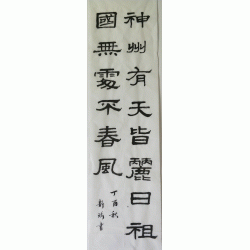 神州有天皆麗日祖
國無處不春風
丁酉秋
書